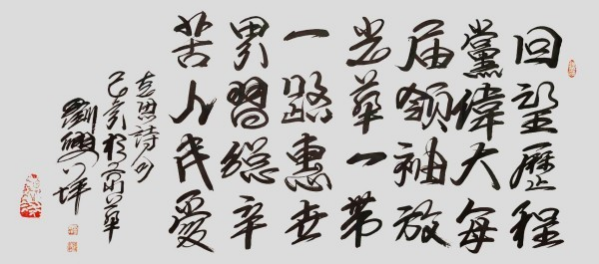 回望歷程
黨偉大每
届領袖放
光華一帶
一路惠世
界習總辛
苦人民愛
思詩句
己亥於
劉
坪